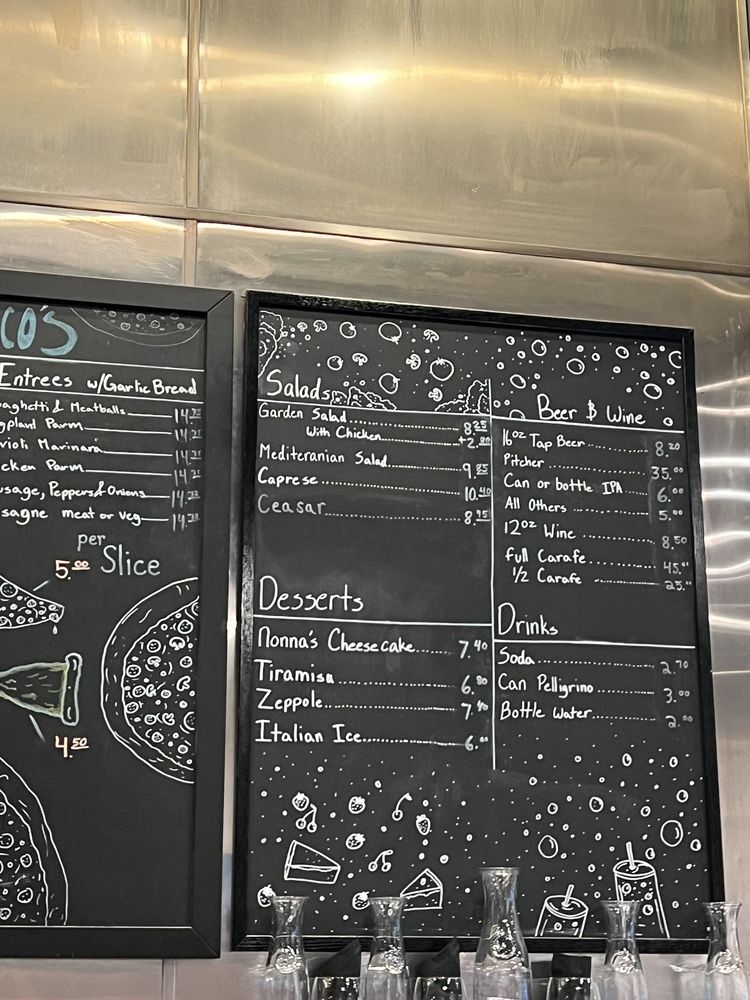 CO'S
Entrees w/Garlic Bread
aghetti & Meatballs 14.25
gplant Parm 14.25
violi Marinara 14.25
cken Parm 14.25
usage, Peppers & Onions 14.25
sagne meat or veg 14.25
per Slice
5.00
4.50
Salads
Garden Salad 8.25
With Chicken +2.80
Mediteranian Salad 9.85
Caprese 10.40
Ceasar 8.95
Desserts
Nonna's Cheesecake 7.40
Tiramisu 6.80
Zeppole 7.40
Italian Ice 6.00
Beer & Wine
16oz Tap Beer 8.20
Pitcher 35.00
Can or bottle IPA 6.00
All Others 5.00
12oz Wine 8.50
Full Carafe 45.00
1/2 Carafe 25.00
Drinks
Soda 2.70
Can Pelligrino 3.00
Bottle Water 2.00